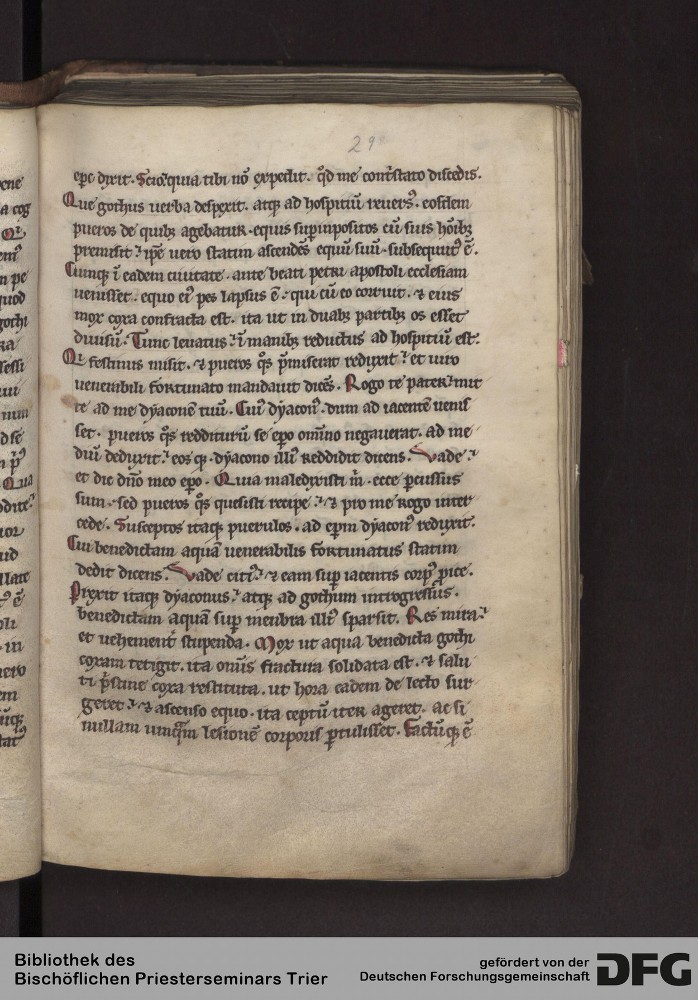 29
ep̅c dixit. Scio. quia tibi nō expedit. qd̛ me contͥstato discedis.
Que gothus uerba despexit. atq; ad hospitiū reuersꝰ. eosdem
pueros de quibꝫ agebatur. equis sup̱inpositos cū suis hōibꝫ
premisit. ip̅e uero statim ascendēs equū suū. subsequutꝰ ē.
Cūmq; ī eadem ciuitate. ante beati petri apostoli ecclesiam
uenisset. equo eiꝰ pes lapsus ē. qui cū eo corruit. ⁊ eius
mox coxa confracta est. ita ut in duabꝫ partibꝫ os esset
diuisū. Tunc leuatus. ī manibꝫ reductus ad hospitiū est.
Qͥ festinus misit. ⁊ pueros q̊s p̱miserat reduxit. et uiro
uenerabili fortunato mandauit dicēs. Rogo te pater. mit
te ad me dyaconē tuū. Cuiꝰ dyaconꝰ. dum ad iacentē uenis
set. pueros q̊s redditurū se ep̅o om̅ino negauerat. ad me
diū deduxit. eosq;. dyacono illiꝰ reddidit dicens. Vade.
et dic dn̅o meo ep̅o. Quia maledixisti m̅. ecce ꝑcussus
sum. sed pueros q̊s quesisti recipe. ⁊ pro me rogo inter
cede. Susceptos itaq; puerulos. ad ep̅m dyaconꝰ reduxit.
Cui benedictam aquā uenerabilis fortunatus statim
dedit dicens. Vade citiꝰ. ⁊ eam sup̱ iacentis corpꝰ ꝓice.
Prexit itaq; dyaconus. atq; ad gothum introgressus.
benedictam aquā sup̱ menbra illiꝰ sparsit. Res mira.
et uehement̛ stupenda. Mox ut aqua benedicta gothi
coxam tetigit. ita omīs fractura solidata est. ⁊ salu
ti p̱stine coxa restituta. ut hora eadem de lecto sur
geret. ⁊ ascenso equo. ita ceptū iter ageret. ac si
nullam umq̄m lesionē corporis ꝑtulisset. Factūq; ē
Bibliothek des
Bischöflichen Priesterseminars Trier
gefördert von der
Deutschen Forschungsgemeinschaft
DFG